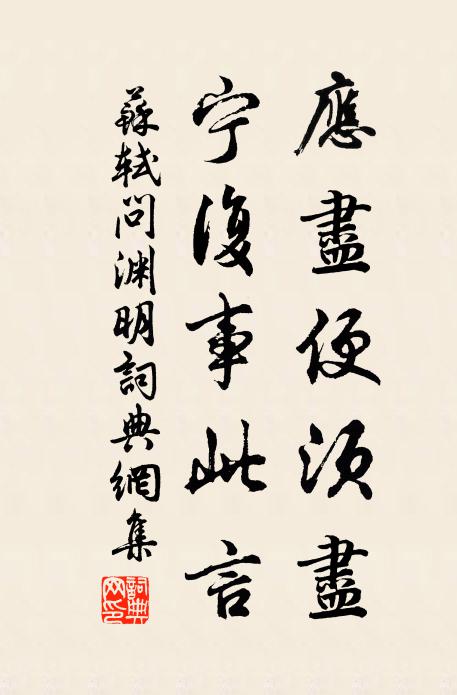 應盡便須盡
宁復事此言
蘇軾問淵明詞典網集
詞典網印